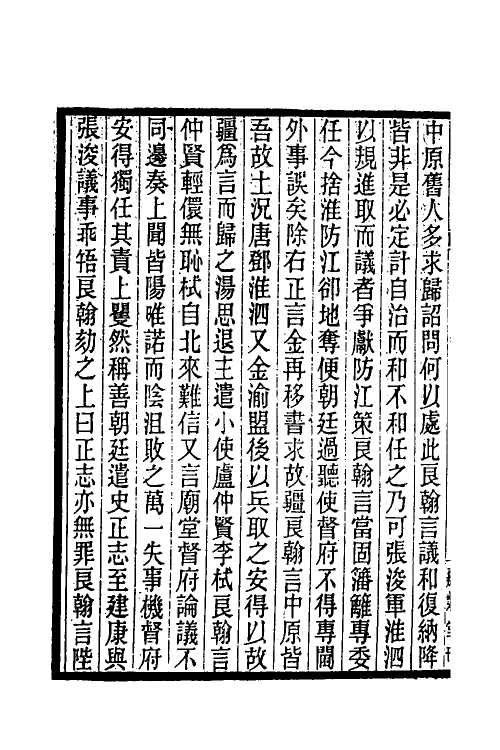 中原舊人多求歸詔問何以處此良翰言議和復納降
皆非是必定計自治而和不和任之乃可張浚軍淮泗
以規進取而議者爭獻防江策良翰言當固籓籬專委
任今捨淮防江卻地奪便朝廷過聽使督府不得專閫
外事誤矣除右正言金再移書求故疆良翰言中原皆
吾故土況唐鄧淮泗又金渝盟後以兵取之安得以故
疆爲言而歸之湯思退王遣小使盧仲賢李栻良翰言
仲賢輕儇無恥栻自北來難信又言廟堂督府論議不
同邊奏上聞皆陽唯諾而陰沮敗之萬一失事機督府
安得獨任其責上矍然稱善朝廷遣史正志至建康與
張浚議事乖牾良翰劾之上曰正志亦無罪良翰言陛